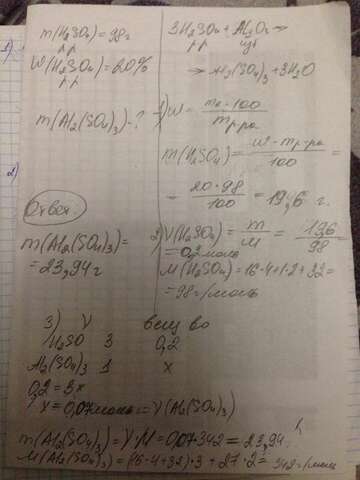 m(H₂SO₄)=98г
р-р
W(H₂SO₄)=20%
р-р
m(Al₂(SO₄)₃)-?
3H₂SO₄+Al₂O₃ →
изб
→ Al₂(SO₄)₃+3H₂O
1) W = mв·100 / mр-ра
m(H₂SO₄) = W·mр-ра / 100 =
= 20·98 / 100 = 19,6 г.
2) V(H₂SO₄) = m / M = 19,6 / 98
=0,2 моль
M(H₂SO₄)=16·4+1·2+32=
=98г/моль
2)
Ответ:
m(Al₂(SO₄)₃)=
=23,94г
3) V вещ во
H₂SO 3 0,2
Al₂(SO₄)₃ 1 x
0,2=3x
x=0,07моль=V(Al₂(SO₄)₃)
m(Al₂(SO₄)₃)=V·M=0,07·342=23,94
M(Al₂(SO₄)₃)=(16·4+32)·3+27·2=342г/моль